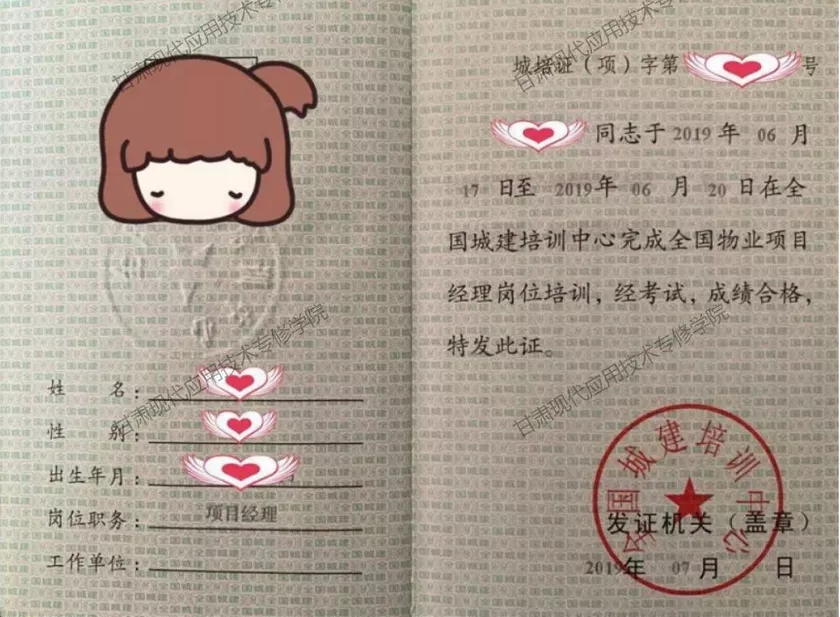 姓 名：
性 别：
出生年月：
岗位职务：项目经理
工作单位：
城培证（项）字第 号
同志于 2019 年 06 月
17 日至 2019 年 06 月 20 日在全
国城建培训中心完成全国物业项目
经理岗位培训，经考试，成绩合格，
特发此证。
全国城建培训中心
发证机关（盖章）
2019 年 07 月 日
甘肃现代应用技术专修学院
甘肃现代应用技术专修学院
甘肃现代应用技术专修学院
甘肃现代应用技术专修学院